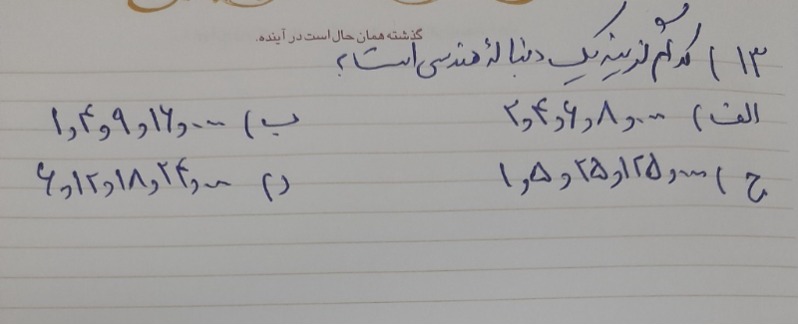 گذشته همان حال است در آینده.
۱۳) کدام گزینه یک دنبالهٔ هندسی است؟
الف) ۲,۴,۶,۸,... ب) ۱,۴,۹,۱۶,...
ج) ۱,۵,۲۵,۱۲۵,... د) ۶,۱۲,۱۸,۲۴,...